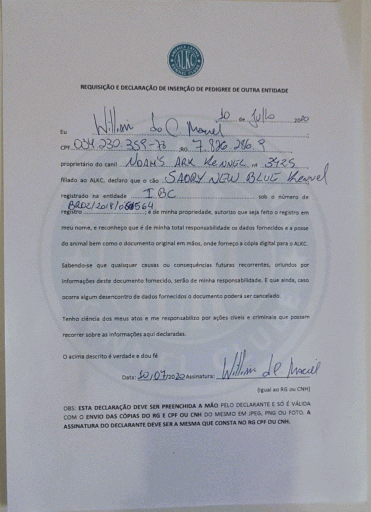 ALKC
REQUISIÇÃO E DECLARAÇÃO DE INSERÇÃO DE PEDIGREE DE OUTRA ENTIDADE
10 de Julho 2020
Eu William do C Maciel
CPF 034.230.359-73 RG 7.826.286.9
proprietário do canil NOAH'S ARK KENNEL nº 3425
filiado ao ALKC, declaro que o cão SAORY NEW BLUE Kennel
registrado na entidade IBC sob o número de
registro BRDZ/2018/ ; é de minha propriedade, autorizo que seja feito o registro em
meu nome, e reconheço que é de minha total responsabilidade os dados fornecidos e a posse
do animal bem como o documento original em mãos, onde forneço a cópia digital para o ALKC.
Sabendo-se que quaisquer causas ou consequências futuras recorrentes, oriundos por
informações deste documento fornecido, serão de minha responsabilidade. E que ainda, caso
ocorra algum desencontro de dados fornecidos o documento poderá ser cancelado.
Tenho ciência dos meus atos e me responsabilizo por ações cíveis e criminais que possam
recorrer sobre as informações aqui declaradas.
O acima descrito é verdade e dou fé
Data: 10/07/2020 Assinatura: William do C Maciel
(igual ao RG ou CNH)
OBS: ESTA DECLARAÇÃO DEVE SER PREENCHIDA A MÃO PELO DECLARANTE E SÓ É VÁLIDA
COM O ENVIO DAS CÓPIAS DO RG E CPF OU CNH DO MESMO EM JPEG, PNG OU FOTO. A
ASSINATURA DO DECLARANTE DEVE SER A MESMA QUE CONSTA NO RG CPF OU CNH.